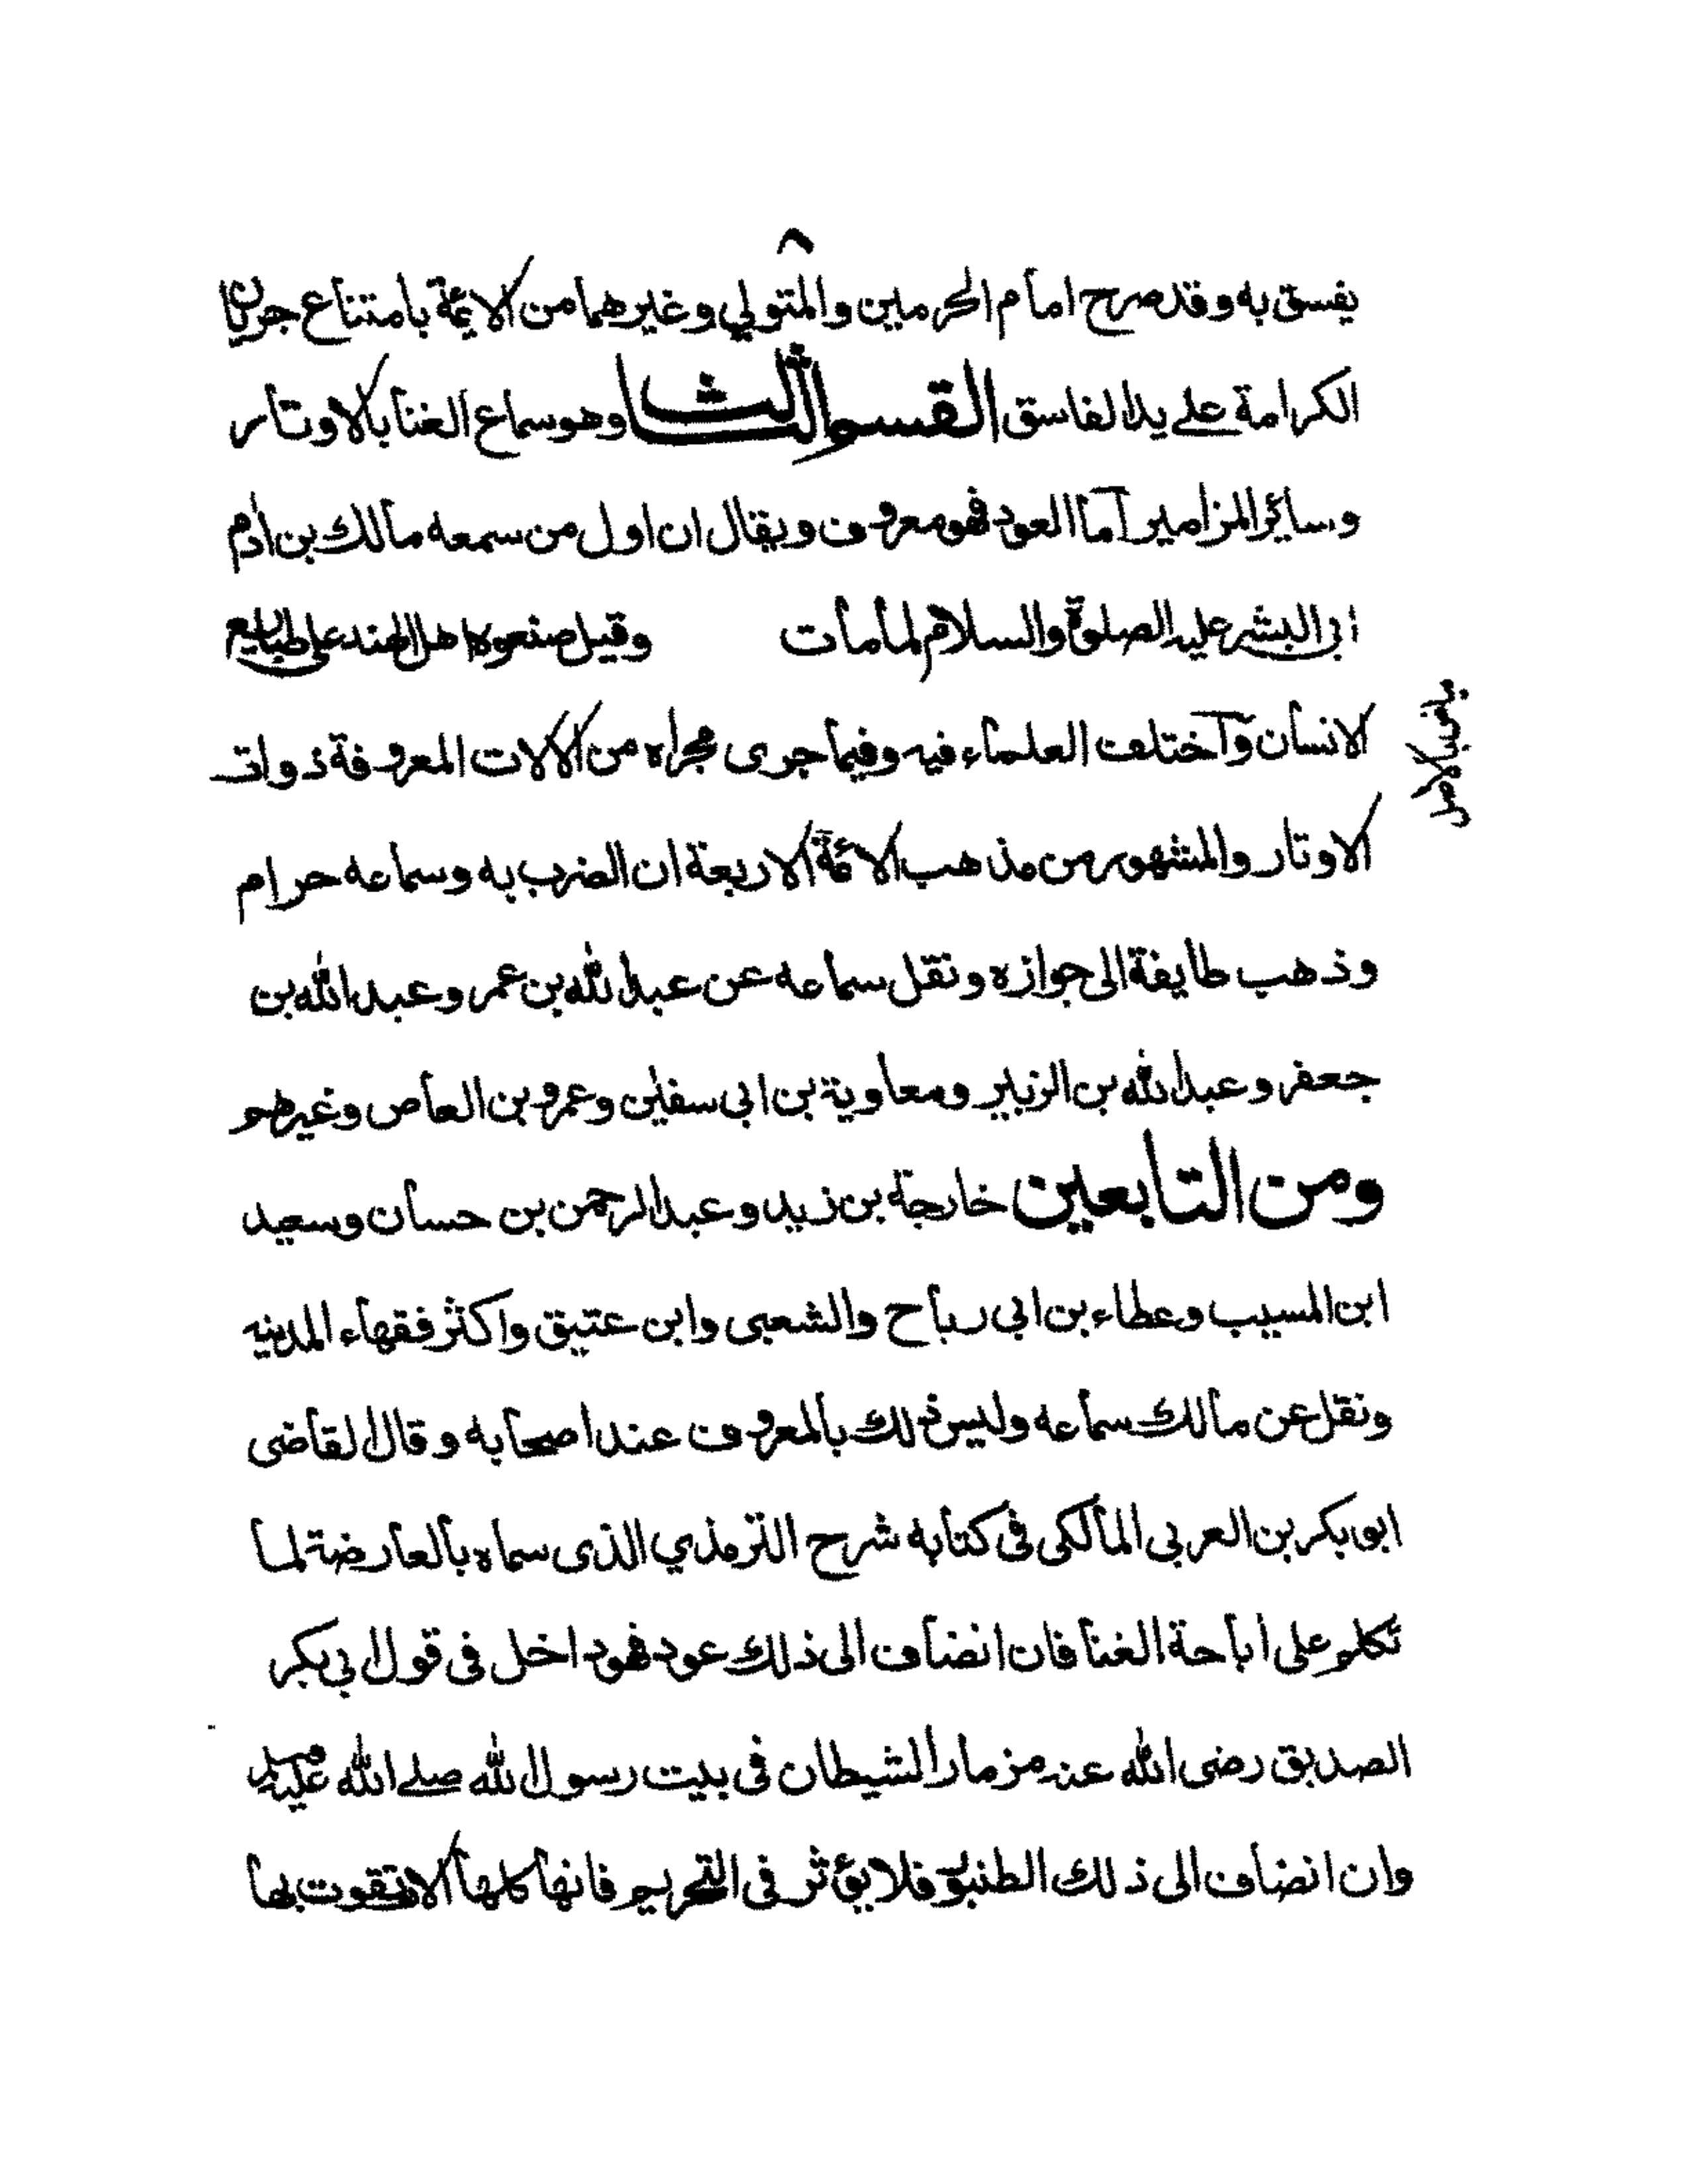 ٨
يفسق به وقد صرح امام الحرمين والمتولي وغيرهما من الايمة بامتناع جريان
الكرامة على يد الفاسق القسم الثالث وهو سماع الغنا بالاوتار
وساير المزامير اما العود فهو معروف ويقال ان اول من سمعه مالك بن ادم
ابى البشر عليه الصلوة والسلام لما مات وقيل صنعوه اهل الهند على طبايع
الانسان واختلف العلماء فيه وفيما جرى مجراه من الالات المعروفة ذوات
بياض بالاصل
الاوتار والمشهور من مذهب الائمة الاربعة ان الضرب به وسماعه حرام
وذهب طايفة الى جوازه ونقل سماعه عن عبد الله بن عمر وعبد الله بن
جعفر وعبد الله بن الزبير ومعاوية بن ابى سفين وعمرو بن العاص وغيرهم
ومن التابعين خارجة بن زيد وعبد الرحمن بن حسان وسعيد
ابن المسيب وعطاء بن ابى رباح والشعبى وابن عتيق واكثر فقهاء المدينه
ونقل عن مالك سماعه وليس ذلك بالمعروف عند اصحابه وقال القاضى
ابو بكر بن العربى المالكى فى كتابه شرح الترمذي الذى سماه بالعارضة لما
تكلم على اباحة الغنا فان انضاف الى ذلك عود فهو داخل فى قول ابى بكر
الصديق رضى الله عنه مزمار الشيطان فى بيت رسول الله صلے الله عليه
وان انضاف الى ذلك الطنبور فلا يؤثر فى التحريم فانها كلها الات بها